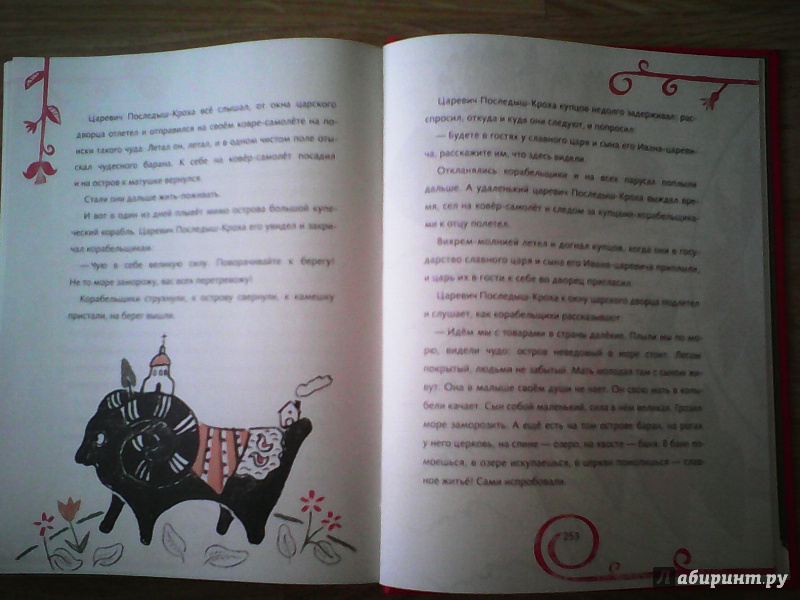 Царевич Последыш-Кроха всё слышал, от окна царского
дворца отлетел и отправился на своём ковре-самолёте на по-
иски такого чуда. Летал он, летал, и в одном чистом поле оты-
скал чудесного барана. К себе на ковёр-самолёт посадил
и на остров к матушке вернулся.
Стали они дальше жить-поживать.
И вот в один из дней плывёт мимо острова большой купе-
ческий корабль. Царевич Последыш-Кроха его увидел и закри-
чал корабельщикам:
— Чую в себе великую силу. Поворачивайте к берегу!
Не то море заморожу, вас всех перетревожу!
Корабельщики струхнули, к острову свернули, к камешку
пристали, на берег вышли.
Царевич Последыш-Кроха купцов недолго задерживал: рас-
спросил, откуда и куда они следуют, и попросил:
— Будете в гостях у славного царя и сына его Ивана-цареви-
ча, расскажите им, что здесь видели.
Откланялись корабельщики и на всех парусах поплыли
дальше. А удаленький царевич Последыш-Кроха выждал вре-
мя, сел на ковёр-самолёт и следом за купцами-корабельщика-
ми к отцу полетел.
Вихрем-молнией летел и догнал купцов, когда они в госу-
дарство славного царя и сына его Ивана-царевича приплыли,
и царь их в гости к себе во дворец пригласил.
Царевич Последыш-Кроха к окну царского дворца подлетел
и слушает, как корабельщики рассказывают:
— Идём мы с товарами в страны далёкие. Плыли мы по мо-
рю, видели чудо: остров неведомый в море стоит. Лесом
покрытый, людьми не забытый. Мать молодая там с сыном жи-
вут. Она в малыше своём души не чает. Он свою мать в колы-
бели качает. Сын собой маленький, сила в нём великая. Грозил
море заморозить. А ещё есть на том острове баран, на рогах
у него церковь, на спине — озеро, на хвосте — баня. В бане по-
моешься, в озере искупаешься, в церкви помолишься — слав-
ное житьё! Сами испробовали.
253
Лабиринт.ру